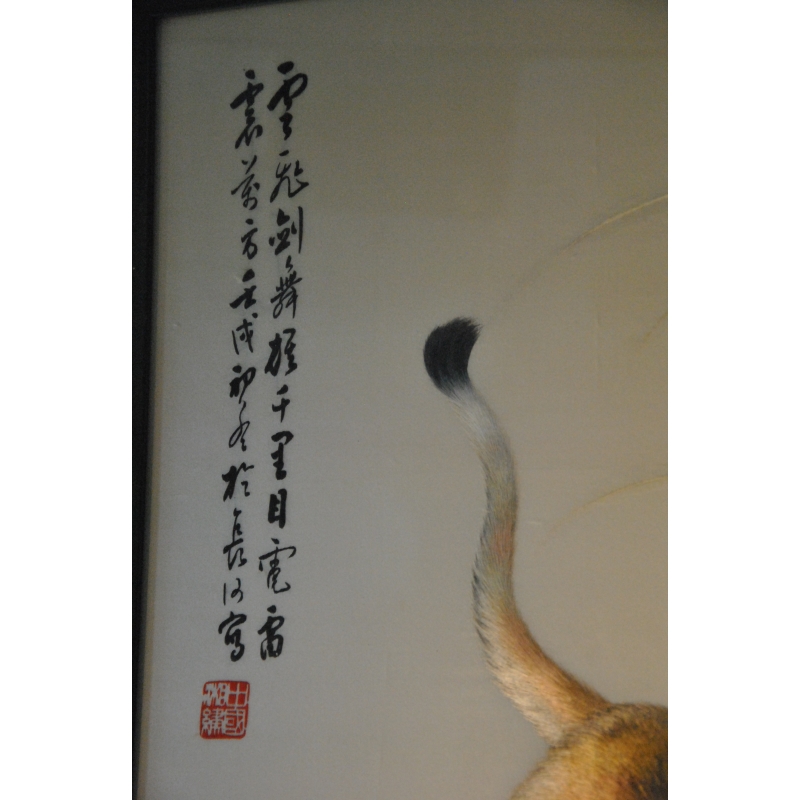 雲飛劍舞千里目電雷
震萬方壬戌初冬於長沙寫
中國
湘繡